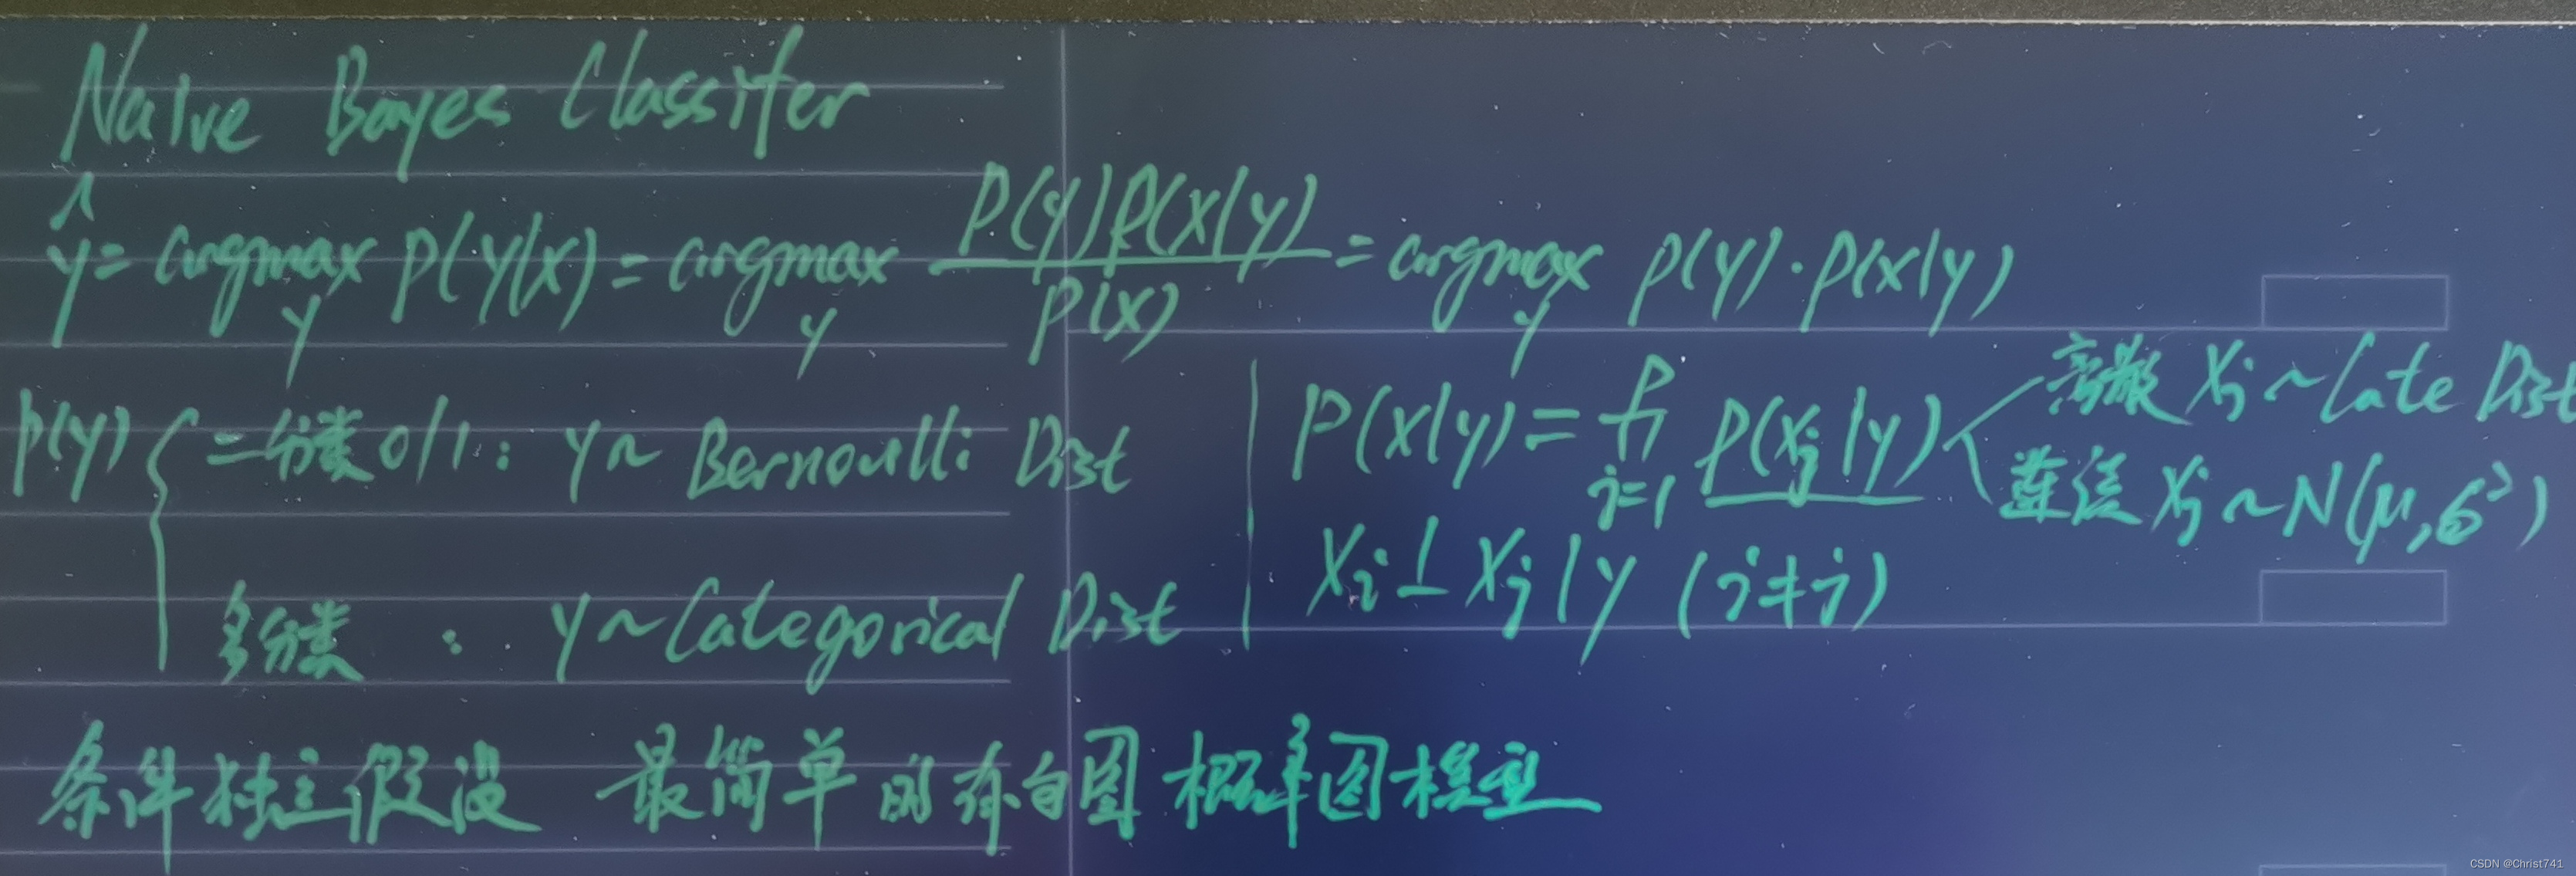 Naive Bayes Classifer
ŷ = argmax_y P(y|x) = argmax_y P(y)P(x|y) / P(x) = argmax_y P(y)·P(x|y)
P(y) { 二分类0/1: y ~ Bernoulli Dist
多分类 : y ~ Categorical Dist
P(x|y) = ∏_{j=1}^{p} P(xj|y)
离散 xj ~ Cate Dist
连续 xj ~ N(μ,σ²)
xi ⊥ xj | y (i≠j)
条件独立假设 最简单的有向图 概率图模型
CSDN @Christ741